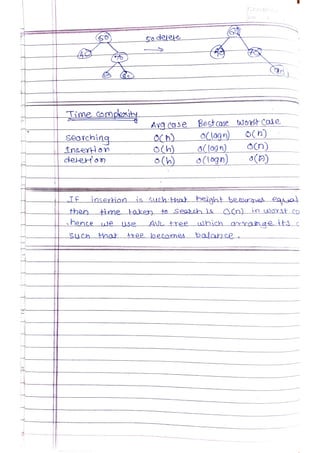 50 50 delete
40
Time Complexity
Avg case Best case Worst case
Searching O(h) O(logn) O(n)
Insertion O(h) O(logn) O(n)
deletion O(h) O(logn) O(n)
If insertion is such that height becomes equal
then time taken to search is O(n) in worst
hence we use AVL tree which arrange its
such that tree becomes balance.